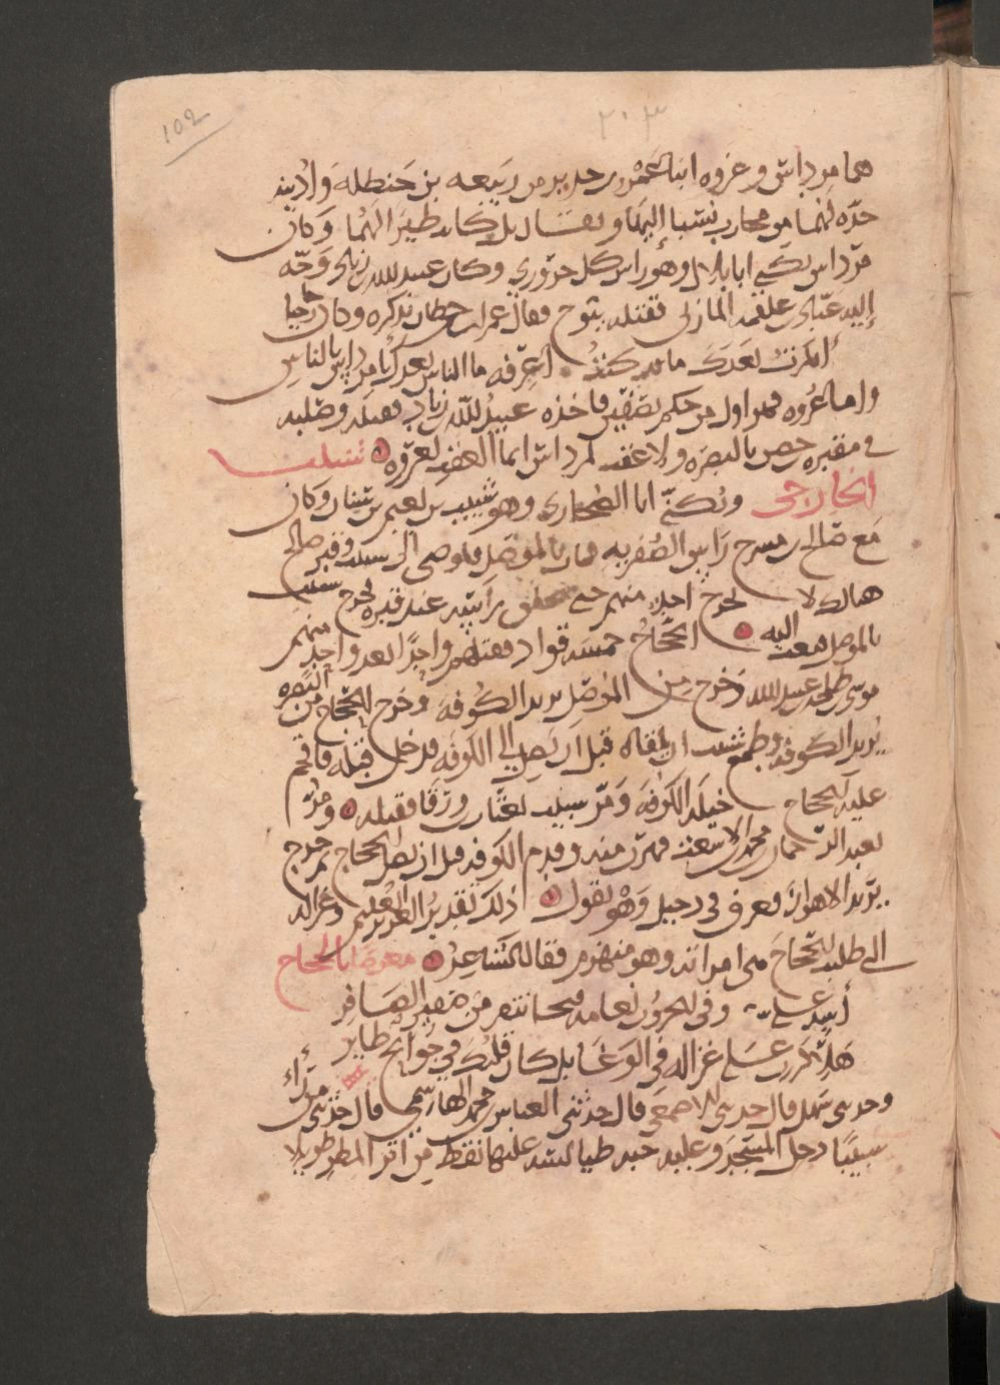 102
٢٠٣
هما مرداس وعروه ابنا عمرو بن حدير من ربيعه بن حنظله وادية
جدّه لهما من محارب نسبا إليها ويقال بل كانت ظيرا لهما وكان
مرداس يكنى ابا بلال وهو راس كل حروري وكان عبيد الله بن زياد وجّه
إليه عبّاد بن علقمه المازني فقتله بتوج فقال عمران بن حطان يذكره وكان خارجيا
أنكرت بعدك من قد كنت اعرفه ما الناس بعدك يا مرداس بالناس
واما عروه فهو اول من حكم بصفين فاخذه عبيد الله بن زياد فقتله وصلبه
في مقبره حصن بالبصره ولا عقب لمرداس انما العقب لعروه شبيب
الخارجى ويكنى ابا الصحارى وهو شبيب بن يزيد بن نعيم من بنى شيبان وكان
مع صالح بن مسرح راس الصفريه فمات بالموصل واوصى الى شبيب وقبر صالح
هنالك لا يخرج احد منهم حتى يحلق راسه عند قبره فخرج شبيب
بالموصل فبعث اليه الحجاج خمسه قواد فقتلهم واحدا بعد واحد منهم
موسى بن طلحه بن عبيد الله وخرج من الموصل يريد الكوفه وخرج الحجاج من البصره
يريد الكوفه وطمع شبيب ان يلقاه قبل ان يصل الى الكوفه فدخل قبله فاقحم
عليه الحجاج خيله الكوفه ومر شبيب بعتاب بن ورقا فقتله ومرّ
بعبد الرحمان بن محمد بن الاشعث فهرب منه وقدم الكوفه قبل ان يصل الحجاج ثم خرج
يريد الاهواز فغرق في دجيل وهو يقول ذلك تقدير العزيز العليم وغزاله
الى طلب الحجاج هي امراته وهو منهزم فقال معرضا بالحجاج
أسد علي وفي الحروب نعامه فتحا تنفر من صفير الصافر
هلا كررت على غزاله في الوغا بل كان قلبك في جوانح طاير
وحدثنى سهل قال حدثنى الاصمعي قال حدثنى العباس بن محمد الهاشمي قال حدثنى من رأى
شبيبا دخل المسجد وعليه جبه طيالسه عليها نقط من اثر المطر طويلا